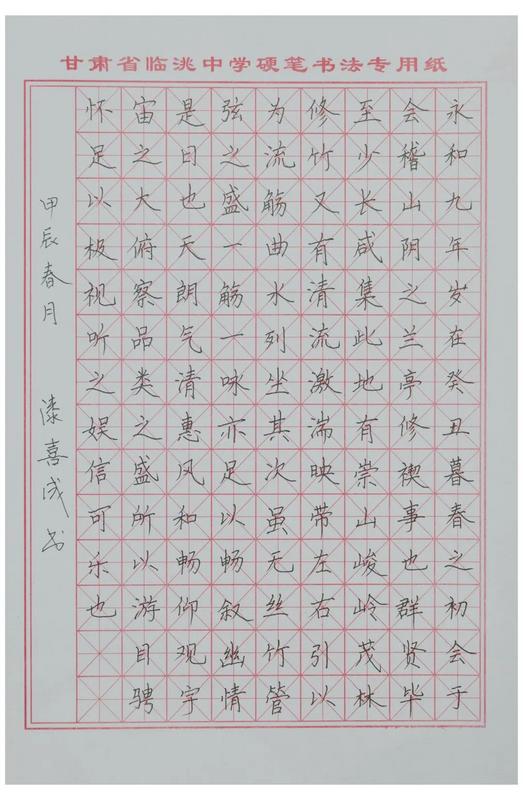 甘肃省临洮中学硬笔书法专用纸
永和九年岁在癸丑暮春之初会于
会稽山阴之兰亭修禊事也群贤毕
至少长咸集此地有崇山峻岭茂林
修竹又有清流激湍映带左右引以
为流觞曲水列坐其次虽无丝竹管
弦之盛一觞一咏亦足以畅叙幽情
是日也天朗气清惠风和畅仰观宇
宙之大俯察品类之盛所以游目骋
怀足以极视听之娱信可乐也
甲辰春月 漆喜成书